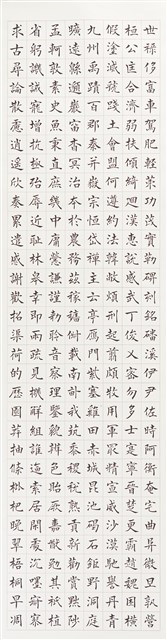 世祿侈富車駕肥輕策功茂實勒碑刻銘磻溪伊尹佐時阿衡奄宅曲阜微旦孰營
桓公匡合濟弱扶傾綺迴漢惠說感武丁俊乂密勿多士寔寧晉楚更霸趙魏困橫
假途滅虢踐土會盟何遵約法韓弊煩刑起翦頗牧用軍最精宣威沙漠馳譽丹青
九州禹蹟百郡秦并嶽宗恒岱禪主云亭雁門紫塞雞田赤城昆池碣石鉅野洞庭
曠遠緜邈巖岫杳冥治本於農務茲稼穡俶載南畝我藝黍稷稅熟貢新勸賞黜陟
孟軻敦素史魚秉直庶幾中庸勞謙謹敕聆音察理鑑貌辨色貽厥嘉猷勉其祗植
省躬譏誡寵增抗極殆辱近恥林皋幸即兩疏見機解組誰逼索居閒處沉默寂寥
求古尋論散慮逍遙欣奏累遣慼謝歡招渠荷的歷園莽抽條枇杷晚翠梧桐早凋